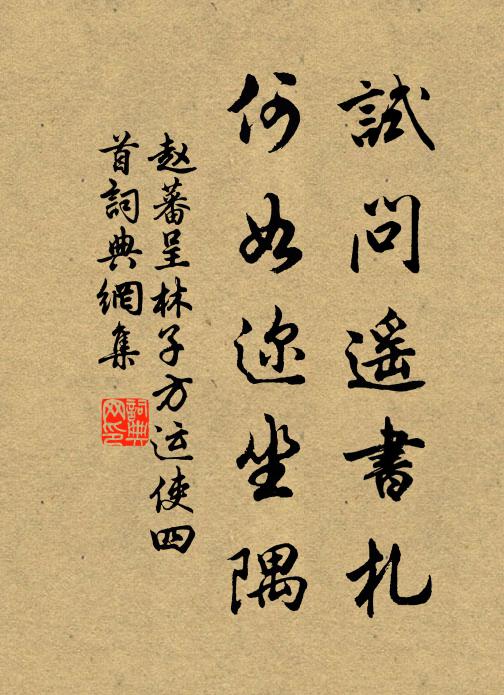 試問遥書札
何如迩坐隅
赵蕃呈林子方运使四
首詞典網集
詞典网印